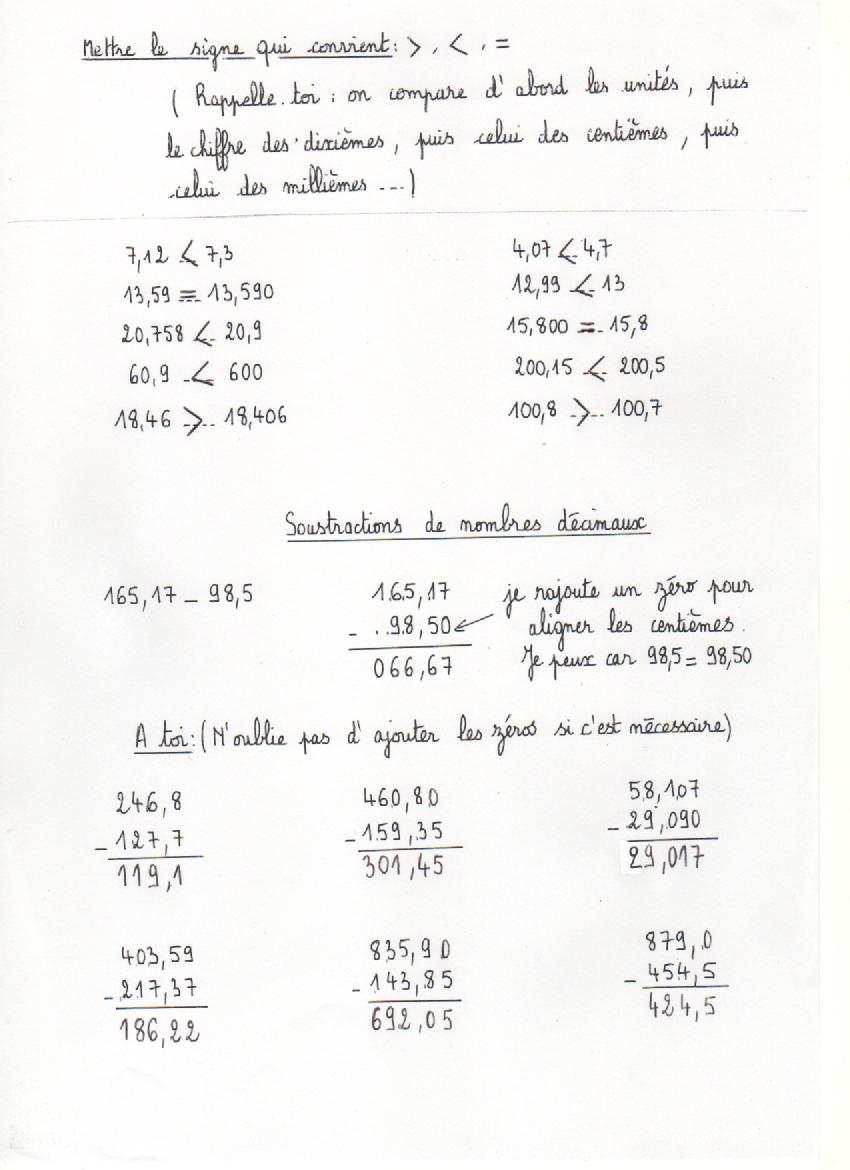 Mettre le signe qui convient : > , < , =
( Rappelle.toi : on compare d'abord les unités, puis
le chiffre des dixièmes, puis celui des centièmes, puis
celui des millièmes ...)
7,12 < 7,3
4,07 < 4,7
13,59 = 13,590
12,99 < 13
20,758 < 20,9
15,800 = 15,8
60,9 < 600
200,15 < 200,5
18,46 > 18,406
100,8 > 100,7
Soustractions de nombres décimaux
165,17 - 98,5
165,17
- 98,50
066,67
je rajoute un zéro pour
aligner les centièmes.
Je peux car 98,5 = 98,50
A toi : (N'oublie pas d'ajouter les zéros si c'est nécessaire)
246,8
- 127,7
119,1
460,80
- 159,35
301,45
58,107
- 29,090
29,017
403,59
- 217,37
186,22
835,90
- 143,85
692,05
879,0
- 454,5
424,5